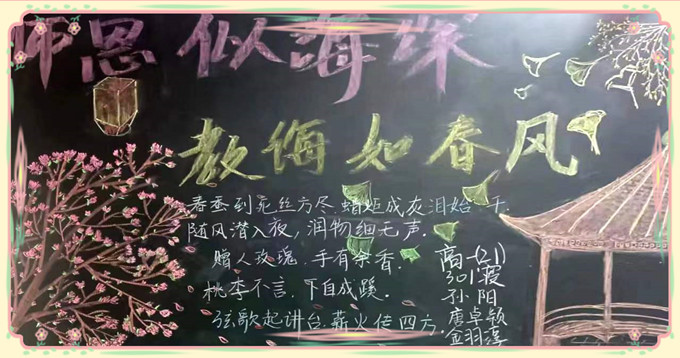 师恩似海深
教诲如春风
春蚕到死丝方尽.蜡炬成灰泪始干.
随风潜入夜，润物细无声.
赠人玫瑰.手有余香.
桃李不言.下自成蹊.
弦歌起讲台.薪火传四方.
高一(21)
孙阳
唐卓颖